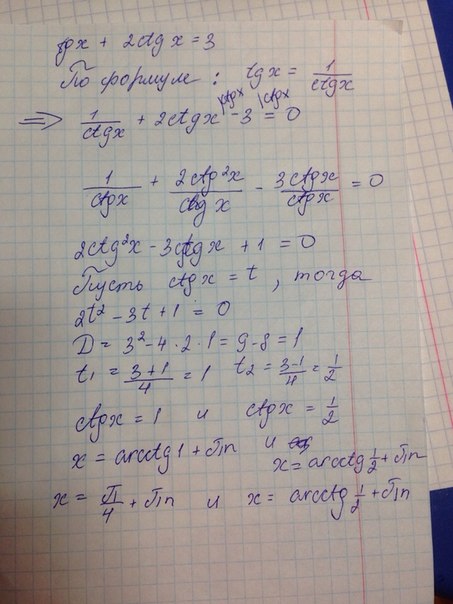 tgx + 2ctgx = 3
По формуле: tgx = 1/ctgx
⇒ 1/ctgx + 2ctgx |ctgx - 3 |ctgx = 0
1/ctgx + 2ctg²x/ctgx - 3ctgx/ctgx = 0
2ctg²x - 3ctgx + 1 = 0
Пусть ctgx = t, тогда
2t² - 3t + 1 = 0
D = 3² - 4·2·1 = 9 - 8 = 1
t₁ = (3+1)/4 = 1 t₂ = (3-1)/4 = 1/2
ctgx = 1 и ctgx = 1/2
x = arcctg1 + πn и x = arcctg 1/2 + πn
x = π/4 + πn и x = arcctg 1/2 + πn